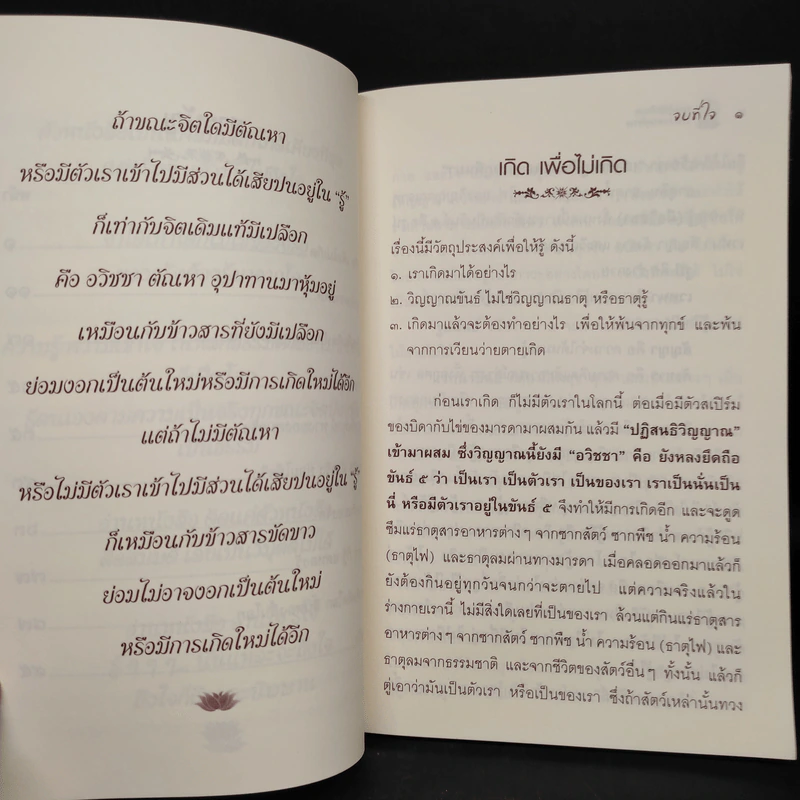 ถ้าขณะจิตใดมีตัณหา
หรือมีตัวเราเข้าไปมีส่วนได้เสียปนอยู่ใน “รู้”
ก็เท่ากับจิตเดิมแท้มีเปลือก
คือ อวิชชา ตัณหา อุปาทานมาหุ้มอยู่
เหมือนกับข้าวสารที่ยังมีเปลือก
ย่อมงอกเป็นต้นใหม่หรือมีการเกิดใหม่ได้อีก
แต่ถ้าไม่มีตัณหา
หรือไม่มีตัวเราเข้าไปมีส่วนได้เสียปนอยู่ใน “รู้”
ก็เหมือนกับข้าวสารขัดขาว
ย่อมไม่อาจงอกเป็นต้นใหม่
หรือมีการเกิดใหม่ได้อีก
จบที่ใจ ๑
เกิด เพื่อไม่เกิด
เรื่องนี้มีวัตถุประสงค์เพื่อให้รู้ ดังนี้
๑. เราเกิดมาได้อย่างไร
๒. วิญญาณขันธ์ ไม่ใช่วิญญาณธาตุ หรือธาตุรู้
๓. เกิดมาแล้วจะต้องทำอย่างไร เพื่อให้พ้นจากทุกข์ และพ้น
จากการเวียนว่ายตายเกิด
ก่อนเราเกิด ก็ไม่มีตัวเราในโลกนี้ ต่อเมื่อมีตัวสเปิร์ม
ของบิดากับไข่ของมารดามาผสมกัน แล้วมี “ปฏิสนธิวิญญาณ”
เข้ามาผสม ซึ่งวิญญาณนี้ยังมี “อวิชชา” คือ ยังหลงยึดถือ
ขันธ์ ๕ ว่า เป็นเรา เป็นตัวเรา เป็นของเรา เราเป็นนั่นเป็น
นี่ หรือมีตัวเราอยู่ในขันธ์ ๕ จึงทำให้มีการเกิดอีก และจะดูด
ซึมแร่ธาตุสารอาหารต่างๆ จากซากสัตว์ ซากพืช น้ำ ความร้อน
(ธาตุไฟ) และธาตุลมผ่านทางมารดา เมื่อคลอดออกมาแล้วก็
ยังต้องกินอยู่ทุกวันจนกว่าจะตายไป แต่ความจริงแล้วใน
ร่างกายเรานี้ ไม่มีสิ่งใดเลยที่เป็นของเรา ล้วนแต่กินแร่ธาตุสาร
อาหารต่างๆ จากซากสัตว์ ซากพืช น้ำ ความร้อน (ธาตุไฟ) และ
ธาตุลมจากธรรมชาติ และจากชีวิตของสัตว์อื่นๆ ทั้งนั้น แล้วก็
ตู่เอาว่ามันเป็นตัวเรา หรือเป็นของเรา ซึ่งถ้าสัตว์เหล่านั้นทวง